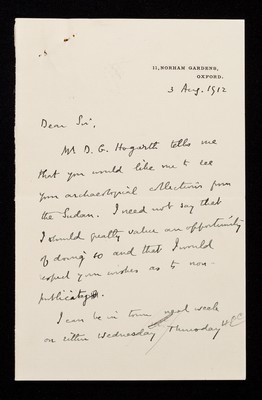 11, NORHAM GARDENS,
OXFORD.
3 Aug. 1912
Dear Sir,
Mr D. G. Hogarth tells me
that you would like me to see
your archaeological collections from
the Sudan. I need not say that
I should greatly value an opportunity
of doing so and that I would
respect your wishes as to non-
publicity.
I can be in town next week
on either Wednesday Thursday